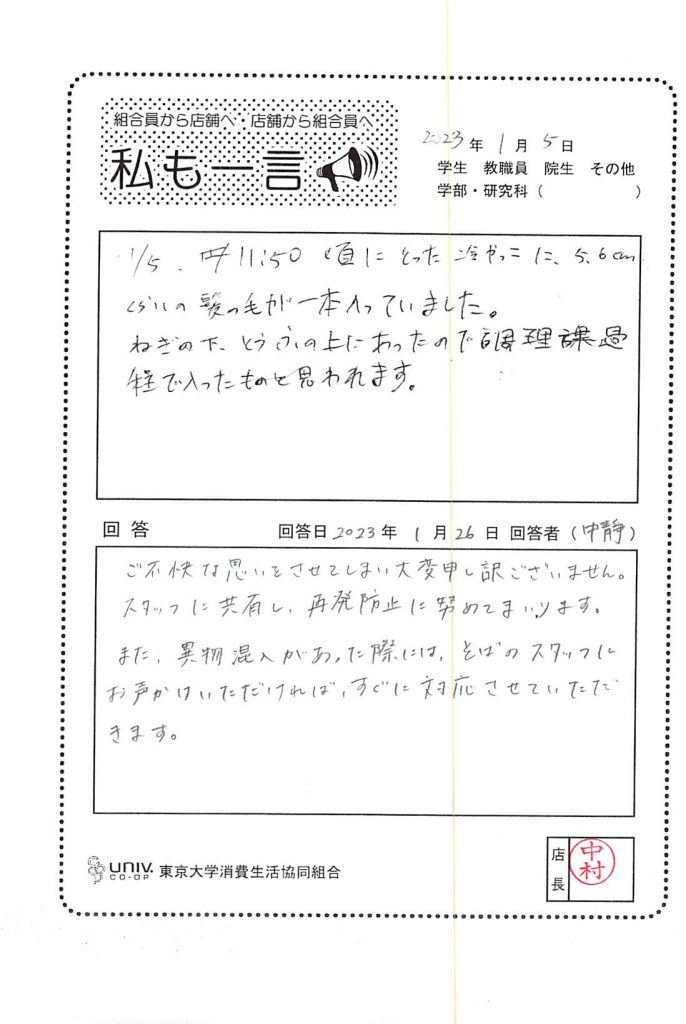 組合員から店舗へ・店舗から組合員へ
私も一言
2023年 1月 5日
学生 教職員 院生 その他
学部・研究科（ ）
1/5、 11:50 頃にとった冷やっこに、5,6cm
くらいの髪の毛が一本入っていました。
ねぎの下、とうふの上にあったので調理課過
程で入ったものと思われます。
回答 回答日 2023年 1月 26日 回答者（中静）
ご不快な思いをさせてしまい大変申し訳ございません。
スタッフに共有し、再発防止に努めてまいります。
また、異物混入があった際には、そばのスタッフに
お声かけいただければ、すぐに対応させていただ
きます。
UNIV. CO-OP 東京大学消費生活協同組合
店長 中村